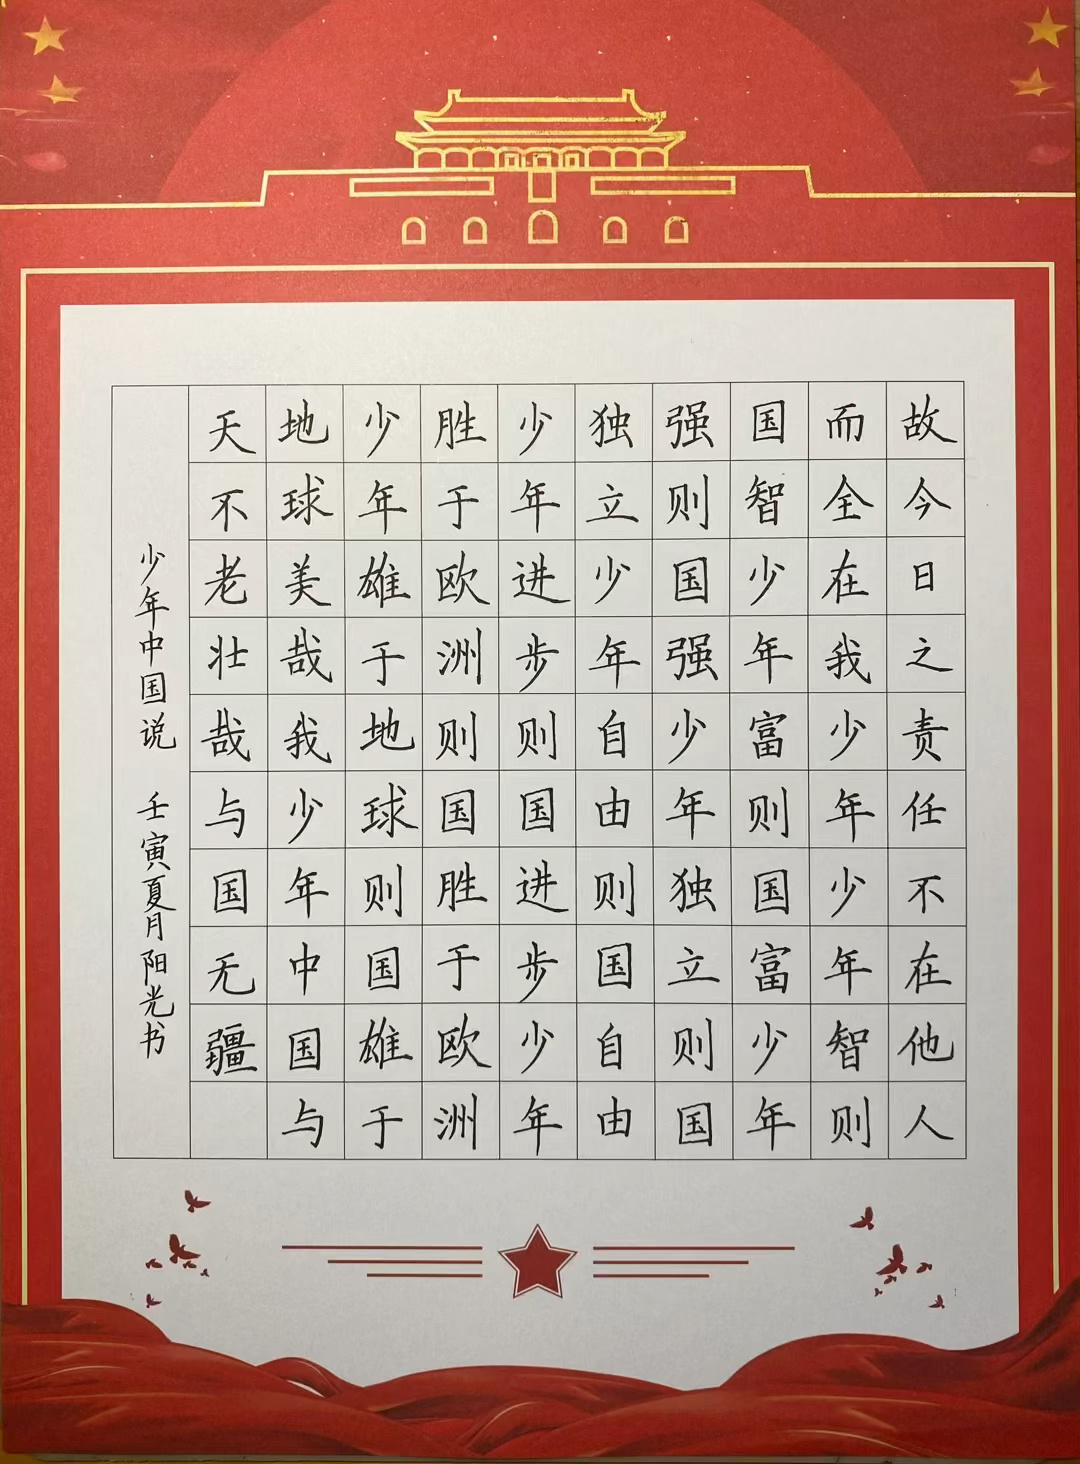 故今日之责任不在他人
而全在我少年少年智则
国智少年富则国富少年
强则国强少年独立则国
独立少年自由则国自由
少年进步则国进步少年
胜于欧洲则国胜于欧洲
少年雄于地球则国雄于
地球美哉我少年中国与
天不老壮哉与国无疆
少年中国说 壬寅夏月阳光书